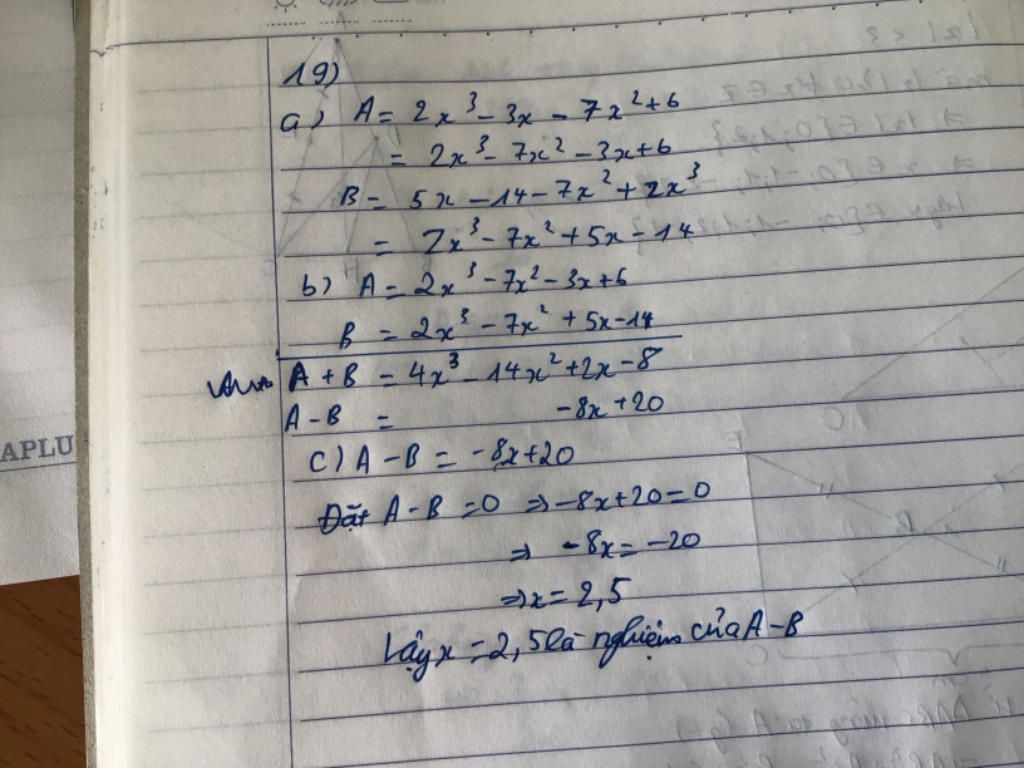 19)
a) A = 2x³ - 3x - 7x² + 6
= 2x³ - 7x² - 3x + 6
B = 5x - 14 - 7x² + 2x³
= 2x³ - 7x² + 5x - 14
b) A = 2x³ - 7x² - 3x + 6
B = 2x³ - 7x² + 5x - 14
A + B = 4x³ - 14x² + 2x - 8
A - B = -8x + 20
APLU
c) A - B = -8x + 20
Đặt A - B = 0 => -8x + 20 = 0
=> -8x = -20
=> x = 2,5
Vậy x = 2,5 là nghiệm của A - B